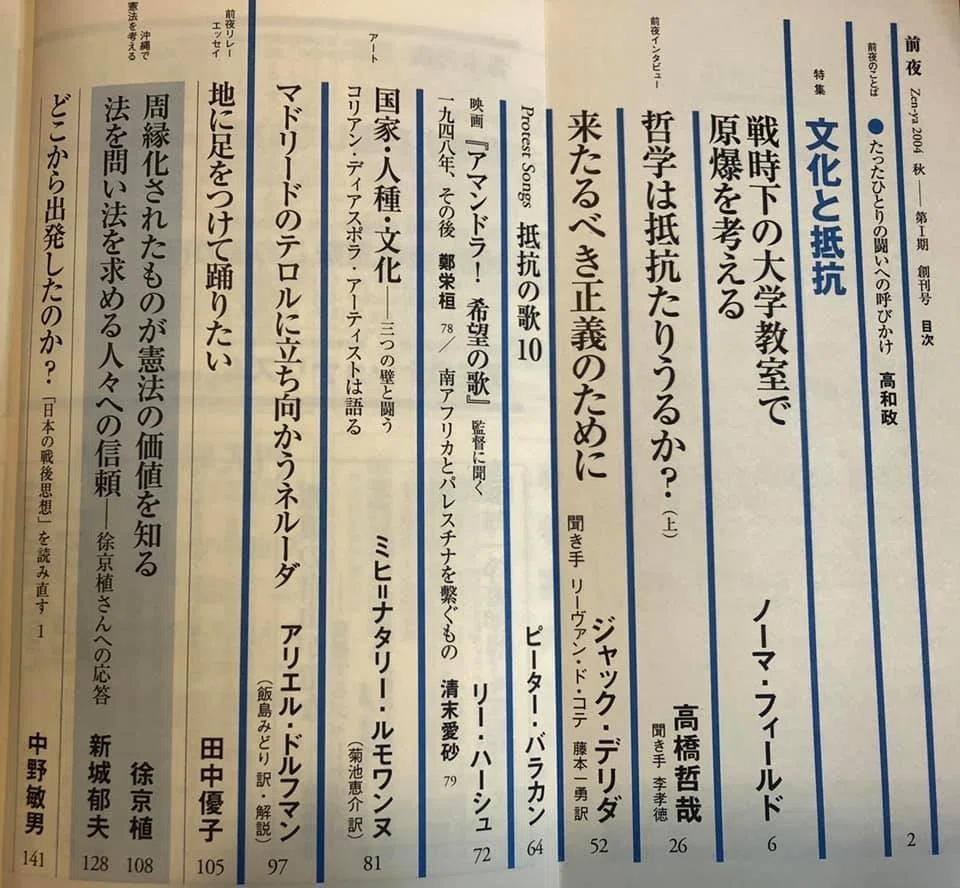 前夜 Zen-ya 2004 秋——第Ⅰ期 創刊号 目次
前夜のことば ●たったひとりの闘いへの呼びかけ 高和政 2
特集 文化と抵抗
戦時下の大学教室で
原爆を考える ノーマ・フィールド 6
前夜インタビュー 哲学は抵抗たりうるか？（上） 高橋哲哉 26
聞き手 李孝徳
来たるべき正義のために ジャック・デリダ 52
聞き手 リーヴァン・ド・コテ 藤本一勇 訳
Protest Songs 抵抗の歌10 ピーター・バラカン 64
映画『アマンドラ！ 希望の歌』監督に聞く リー・ハーシュ 72
一九四八年、その後 鄭栄桓 78／ 南アフリカとパレスチナを繫ぐもの 清末愛砂 79
アート 国家・人種・文化——三つの壁と闘う
コリアン・ディアスポラ・アーティストは語る ミヒ＝ナタリー・ルモワンヌ 81
（菊池恵介 訳）
マドリードのテロルに立ち向かうネルーダ アリエル・ドルフマン 97
（飯島みどり 訳・解説）
前夜リレーエッセイ 地に足をつけて踊りたい 田中優子 105
沖縄で憲法を考える 周縁化されたものが憲法の価値を知る 徐京植 108
法を問い法を求める人々への信頼——徐京植さんへの応答 新城郁夫 128
どこから出発したのか？ 「日本の戦後思想」を読み直す 1 中野敏男 141